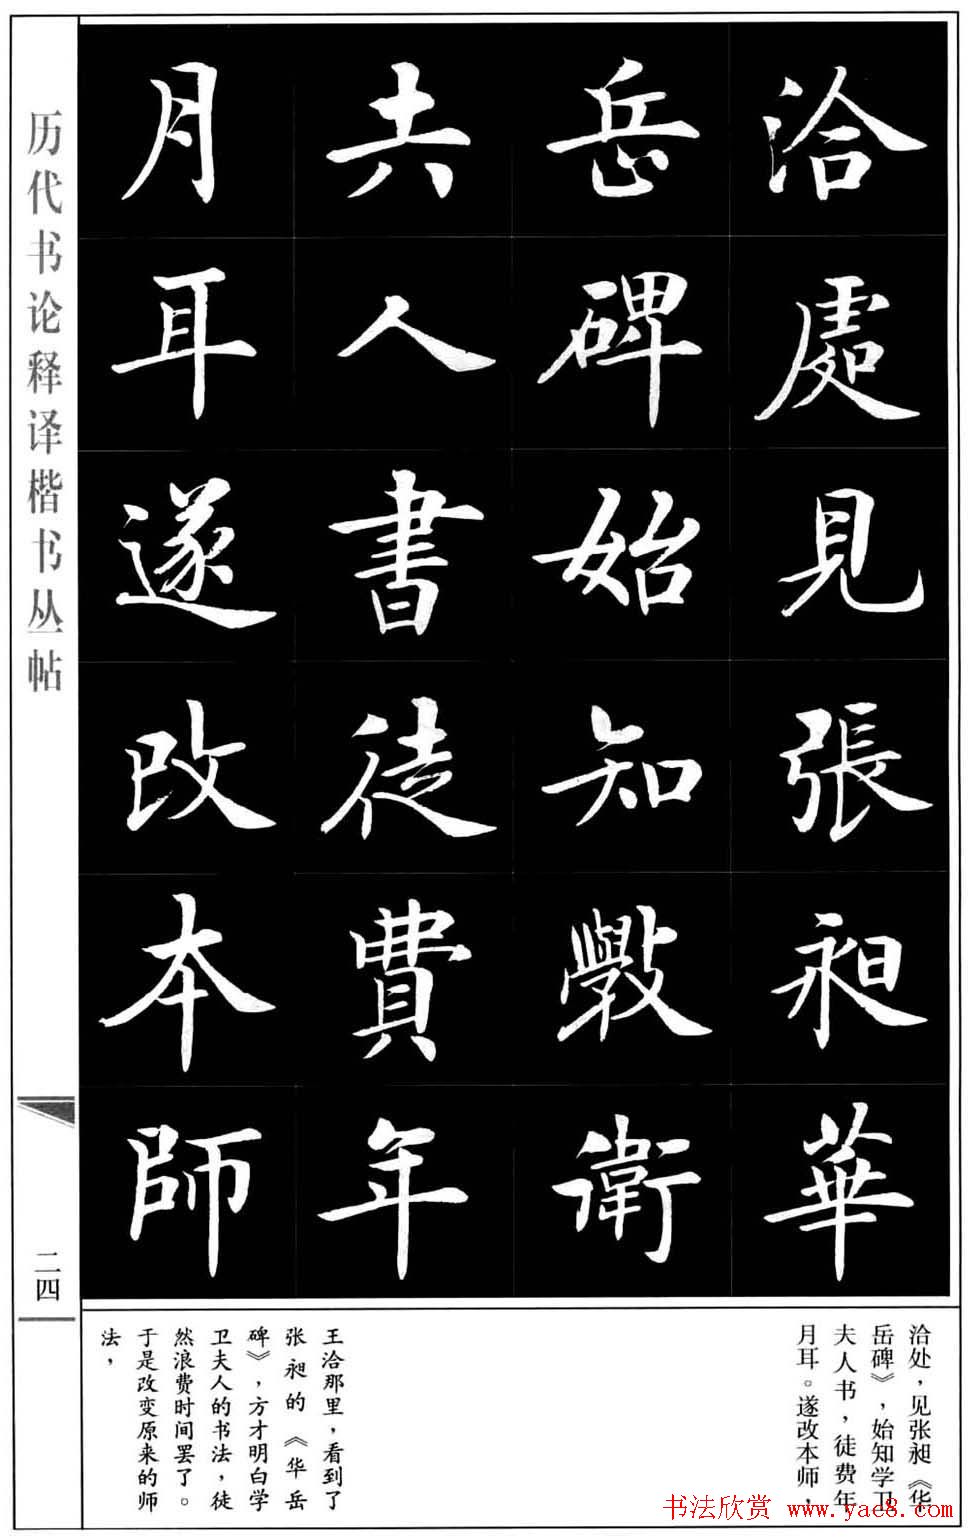 洽處見張昶華
岳碑始知斆衛
夫人書徒費年
月耳遂改本師
历代书论释译楷书丛帖
二四
洽处，见张昶《华
岳碑》，始知学卫
夫人书，徒费年
月耳。遂改本师，
王洽那里，看到了
张昶的《华岳
碑》，方才明白学
卫夫人的书法，徒
然浪费时间罢了。
于是改变原来的师
法，
书法欣赏 www.yac8.com